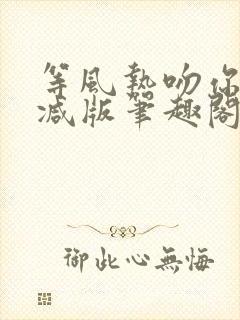 等風熱吻你
减版筆趣閣
御此心無悔